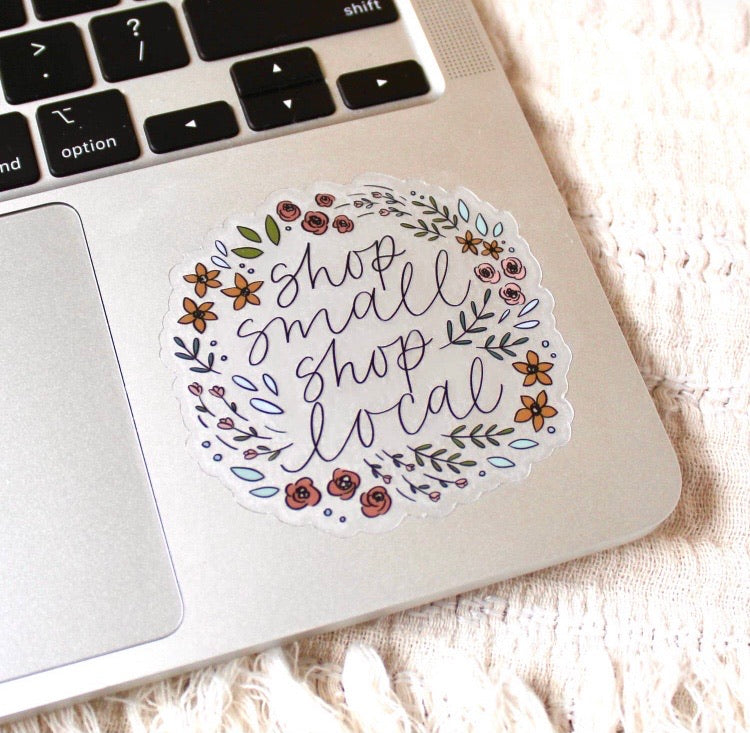 shift
>
.
?
/
option
nd
shop
small
shop
local